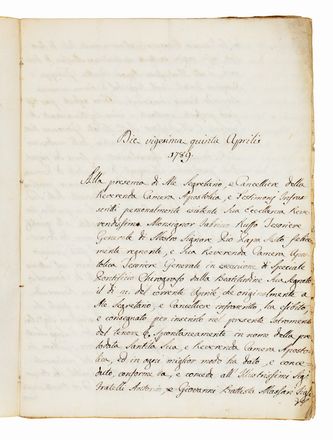 Die vigesima quinta Aprilis
1789.
Alla presenza di Me Segretario, e Cancelliere della
Reverenda Camera Apostolica, e Testimonj infras
critti personalmente esistente Sua Eccellenza Reve
rendissima Monsignor Fabrizio Ruffo Tesoriere
Generale di Nostro Signore Pio Papa Sesto, felice
mente regnante, e sua Reverenda Camera Apos
tolica Tesoriere Generale in esecuzione di Speciale
Pontificio Chirografo dalla Beatitudine Sua Segnato
il dì 11. del corrente Aprile, ed originalmente a
Me Segretario, e Cancelliere infrascritto ha esibito,
e consegnato per inserirlo nel presente Istromento
del tenore &c. Spontaneamente in nome della pre
lodata Santità Sua, e Reverenda Camera Aposto
lica, ed in ogni miglior modo ha dato, e conce
duto, conforme dà, e concede all' Illustrissimi Sigri
Fratelli Antonio, e Giovanni Battista